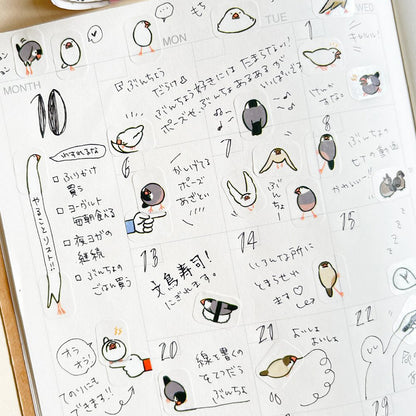 もち
MONTH
MON
TUE
WED
10
ぶんちょう
だらけ
ぶんちょう好きには たまらない!
ポーズや、ぶんちょあるあるが
いっぱいです
わすれるな
やることリスト!!
□ ふりかけ
買う
□ ヨーグルト
毎朝食べる
□ 夜ヨガの
継続
□ ぶんちょの
ごはん買う
6
かしげてる
ポーズ
あざとい
7
ぶんちょー
8
ぶんちょの
七十の動画
かわいいー!!
13
文鳥寿司!
にぎれます。
14
いろんな所に
とまらせれ
ます♡
15
オラ
オラ!
てのりにも
できます!!
20
線を書くの
をてつだう
ぶんちょ
21
よいしょ
よいしょ
22